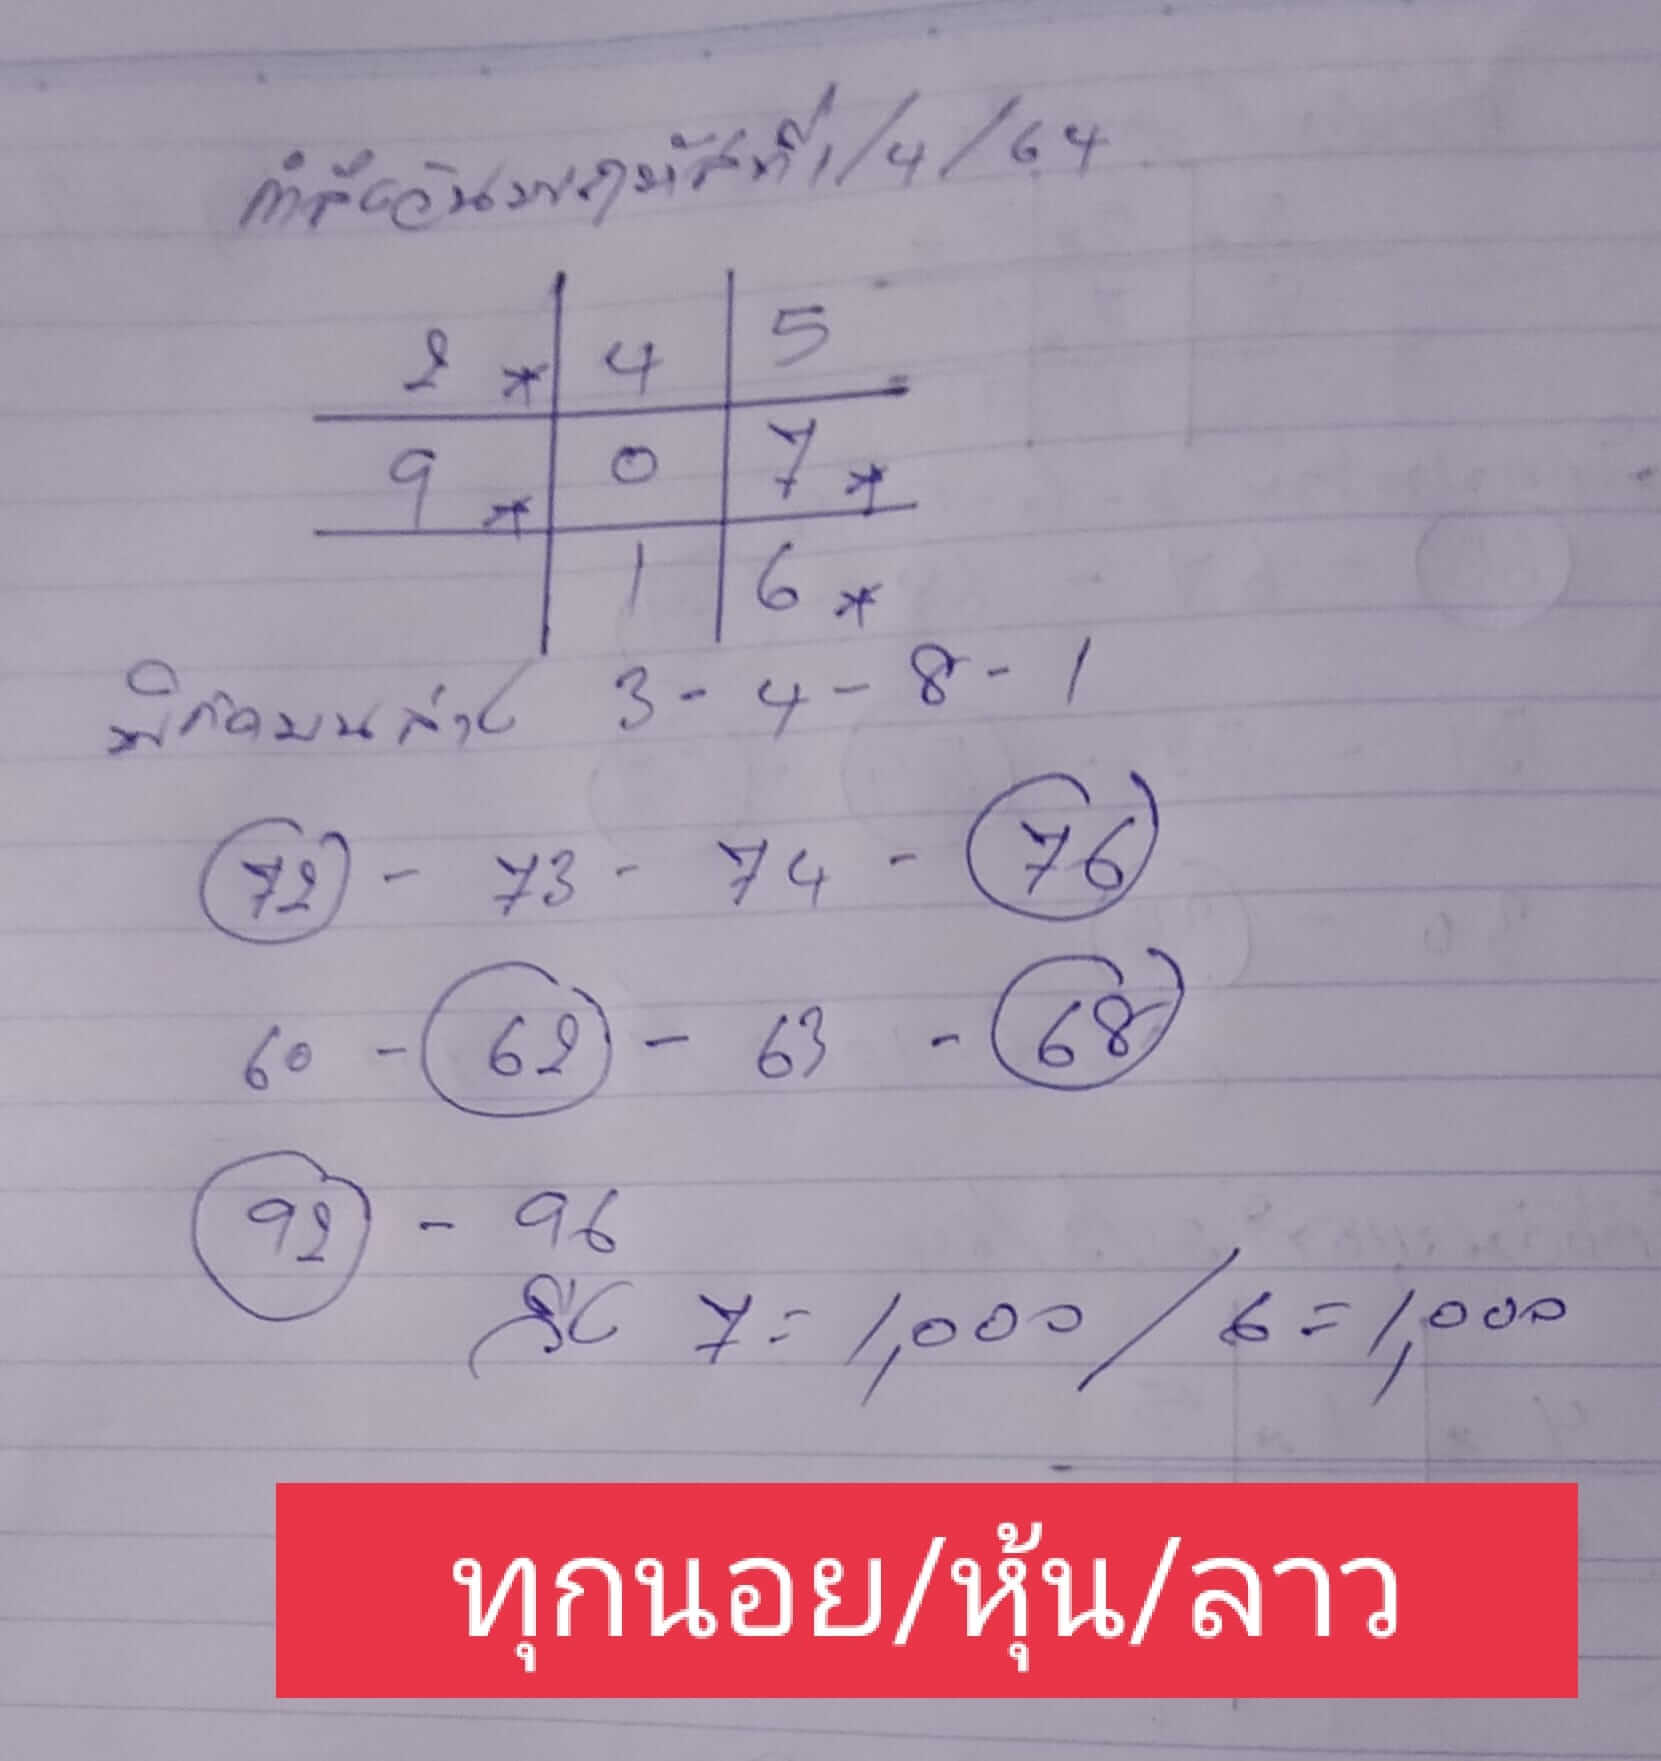 กำลังวันพฤหัสที่ 1/4/64
2 * 4 5
9 * 0 7 *
1 6 *
พิกัดบนล่าง 3-4-8-1
72 - 73 - 74 - 76
60 - 62 - 63 - 68
92 - 96
วิ่ง 7 = 1,000 / 6 = 1,000
ทุกนอย/หุ้น/ลาว